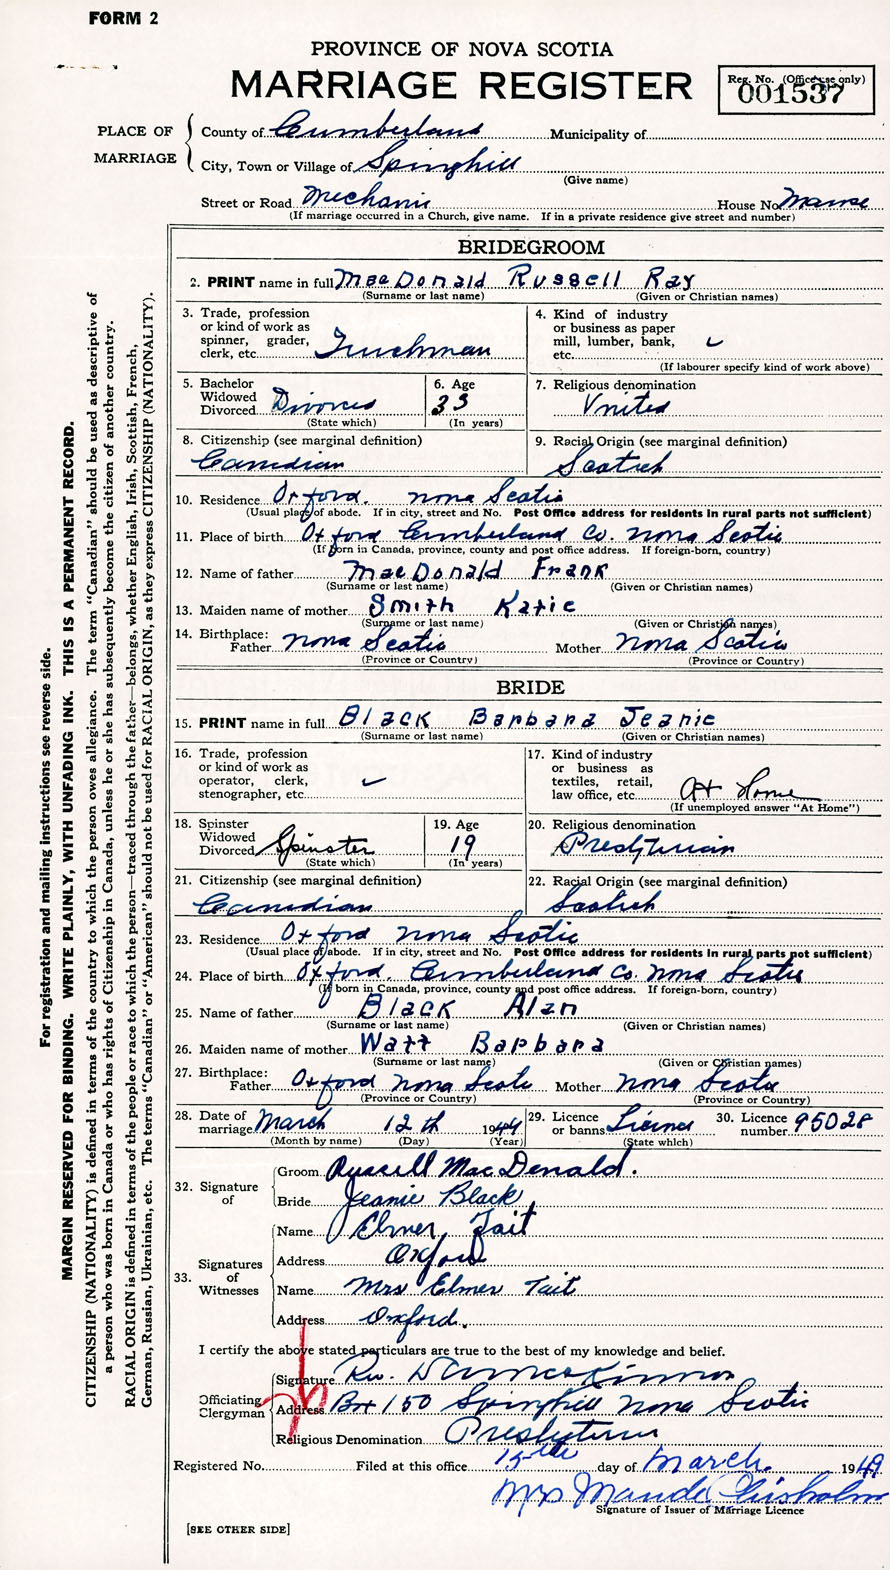 FORM 2
PROVINCE OF NOVA SCOTIA
MARRIAGE REGISTER
Reg. No. (Office use only)
001537
PLACE OF MARRIAGE
County of Cumberland Municipality of
City, Town or Village of Springhill
(Give name)
Street or Road Mechanic House No. Manse
(If marriage occurred in a Church, give name. If in a private residence give street and number)
BRIDEGROOM
2. PRINT name in full MacDonald Russell Ray
(Surname or last name) (Given or Christian names)
3. Trade, profession or kind of work as spinner, grader, clerk, etc. Truckman
4. Kind of industry or business as paper mill, lumber, bank, etc. ✓
(If labourer specify kind of work above)
5. Bachelor Widowed Divorced Divorced
(State which)
6. Age 33
(In years)
7. Religious denomination
United
8. Citizenship (see marginal definition)
Canadian
9. Racial Origin (see marginal definition)
Scotish
10. Residence Oxford. Nova Scotia
(Usual place of abode. If in city, street and No. Post Office address for residents in rural parts not sufficient)
11. Place of birth Oxford Cumberland Co. Nova Scotia
(If born in Canada, province, county and post office address. If foreign-born, country)
12. Name of father MacDonald Frank
(Surname or last name) (Given or Christian names)
13. Maiden name of mother Smith Katie
(Surname or last name) (Given or Christian names)
14. Birthplace: Father Nova Scotia Mother Nova Scotia
(Province or Country) (Province or Country)
BRIDE
15. PRINT name in full Black Barbara Jeanie
(Surname or last name) (Given or Christian names)
16. Trade, profession or kind of work as operator, clerk, stenographer, etc. ✓
17. Kind of industry or business as textiles, retail, law office, etc. At Home
(If unemployed answer "At Home")
18. Spinster Widowed Divorced Spinster
(State which)
19. Age 19
(In years)
20. Religious denomination
Presbyterian
21. Citizenship (see marginal definition)
Canadian
22. Racial Origin (see marginal definition)
Scotish
23. Residence Oxford Nova Scotia
(Usual place of abode. If in city, street and No. Post Office address for residents in rural parts not sufficient)
24. Place of birth Oxford, Cumberland Co. Nova Scotia
(If born in Canada, province, county and post office address. If foreign-born, country)
25. Name of father Black Alan
(Surname or last name) (Given or Christian names)
26. Maiden name of mother Watt Barbara
(Surname or last name) (Given or Christian names)
27. Birthplace: Father Oxford Nova Scotia Mother Nova Scotia
(Province or Country) (Province or Country)
28. Date of marriage March 12th 1949
(Month by name) (Day) (Year)
29. Licence or banns License
(State which)
30. Licence number 95028
32. Signature of
Groom Russell MacDonald.
Bride Jeanie Black
33. Signatures of Witnesses
Name Elmer Tait
Address Oxford
Name Mrs Elmer Tait
Address Oxford.
I certify the above stated particulars are true to the best of my knowledge and belief.
Officiating Clergyman
Signature Rev.
Address Box 150 Springhill Nova Scotia
Religious Denomination Presbyterian
Registered No. Filed at this office 15th day of March. 1949
Mrs Maude Chisholm
Signature of Issuer of Marriage Licence
[SEE OTHER SIDE]
For registration and mailing instructions see reverse side.
MARGIN RESERVED FOR BINDING. WRITE PLAINLY, WITH UNFADING INK. THIS IS A PERMANENT RECORD.
CITIZENSHIP (NATIONALITY) is defined in terms of the country to which the person owes allegiance. The term "Canadian" should be used as descriptive of
a person who was born in Canada or who has rights of Citizenship in Canada, unless he or she has subsequently become the citizen of another country.
RACIAL ORIGIN is defined in terms of the people or race to which the person—traced through the father—belongs, whether English, Irish, Scottish, French,
German, Russian, Ukrainian, etc. The terms "Canadian" or "American" should not be used for RACIAL ORIGIN, as they express CITIZENSHIP (NATIONALITY).